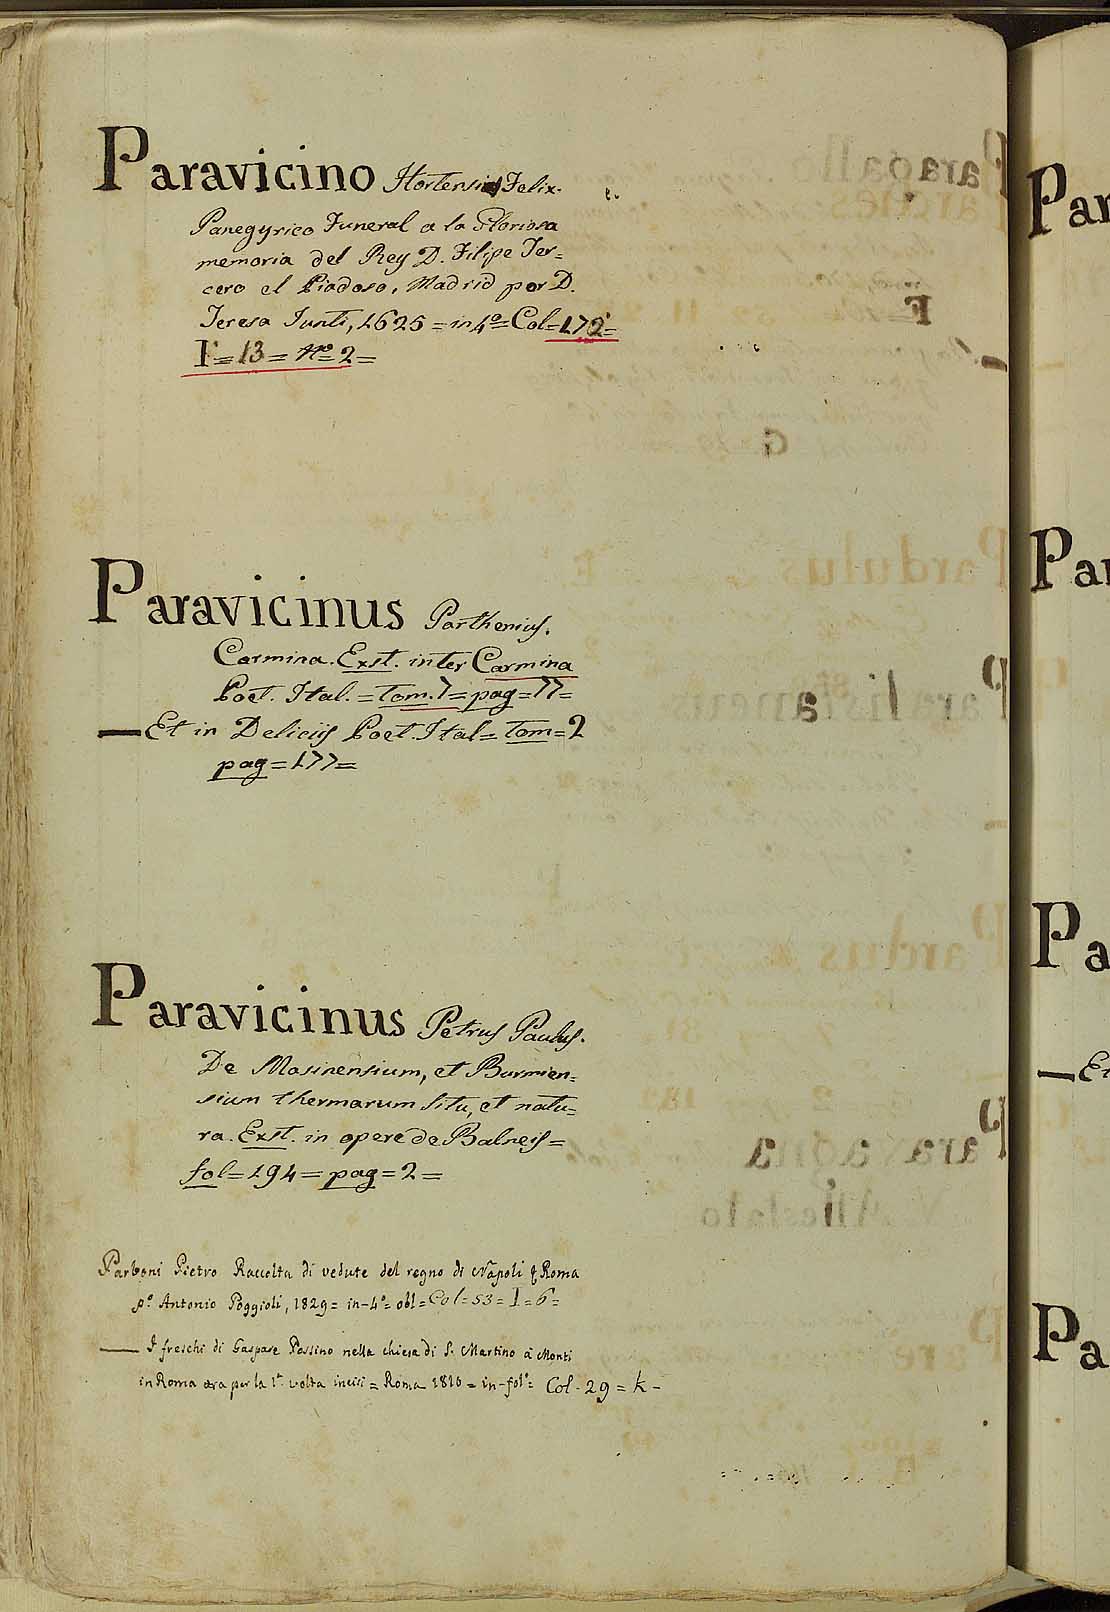 Paravicino Hortensio Felix.
Panegyrico Funeral a la Gloriosa
memoria del Rey D. Filipe Ter=
cero el Piadoso, Madrid por D.
Teresa Junti, 1625 = in 4º = Col = 172 =
I = 13 = Nº 2 =
Paravicinus Parthenius.
Carmina. Exst. inter Carmina
Poet. Ital. = tom. 7 = pag = 77 =
— Et in Deliciis Poet. Ital = tom = 2
pag = 177 =
Paravicinus Petrus Paulus.
De Masinensium, et Burmien=
sium thermarum situ, et natu=
ra. Exst. in opere de Balneis =
fol = 194 = pag = 2 =
Parboni Pietro Raccolta di vedute del regno di Napoli Roma
pº Antonio Poggioli, 1829 = in-4º = obl = Col = 53 = I = 6 =
— I freschi di Gaspare Possino nella chiesa di S. Martino a Monti
in Roma ora per la 1ª volta incisi = Roma 1810 = in-folº = Col - 29 = k -
Par
Par
Pa
— Et
Pa